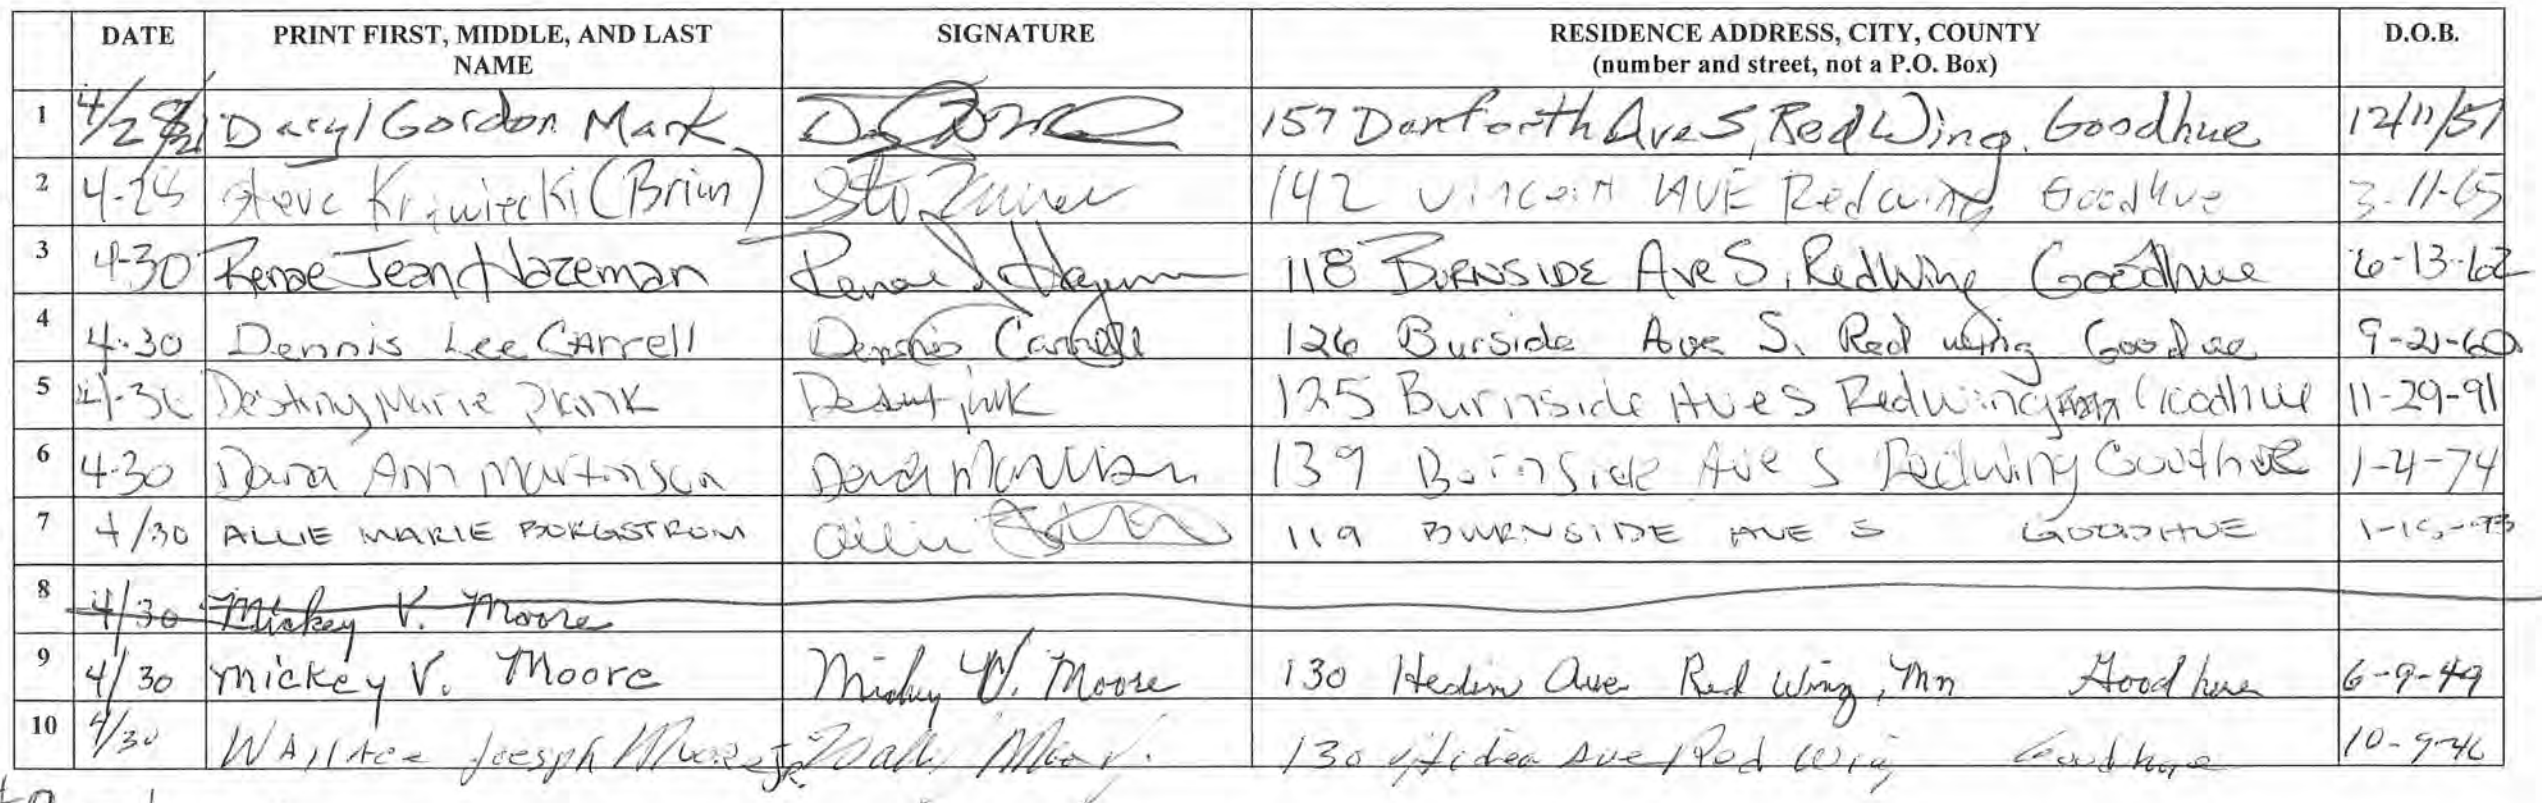 DATE PRINT FIRST, MIDDLE, AND LAST NAME SIGNATURE RESIDENCE ADDRESS, CITY, COUNTY (number and street, not a P.O. Box) D.O.B.
1 Daryl Gordon Mark 157 Danforth Ave S, Red Wing, Goodhue 12/11/57
2 4-28 Steve (Brian) 142 Vincent AVE Redwing Goodhue 3-11-65
3 4-30 Renae Jean Hazeman Renae J Hazeman 118 BURNSIDE Ave S. RedWing Goodhue 6-13-62
4 4-30 Dennis Lee CArrell Dennis Carrell 126 Burside Ave S. Red wing Goodue 9-21-60
5 4-30 Destiny Marie 125 Burnside Ave S Redwing Goodhue 11-29-91
6 4-30 Dana Ann Martinson Dana Martinson 139 Burnside Ave S Redwing Goodhue 1-4-74
7 4/30 ALLIE MARIE BORGSTROM Allie 119 BURNSIDE AVE S GOODHUE
8 4/30 Mickey V. Moore
9 4/30 Mickey V. Moore Mickey V. Moore 130 Hedin Ave Red Wing, Mn Goodhue 6-9-49
10 4/30 WAllAce Joesph Moore Jr. 130 Ave Red Wing Goodhue 10-9-46